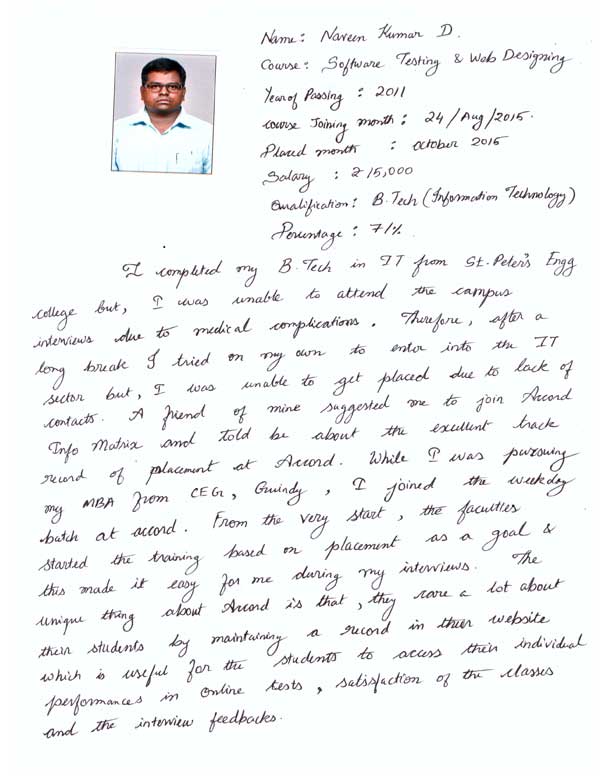 Name: Naveen Kumar D.
Course: Software Testing & Web Designing
Year of Passing : 2011
course Joining month : 24/Aug/2015.
Placed month : october 2015
Salary : ₹ 15,000
Qualification : B.Tech (Information Technology)
Percentage : 71%
I completed my B.Tech in IT from St.Peter's Engg
college but, I was unable to attend the campus
interviews due to medical complications. Therefore, after a
long break I tried on my own to enter into the IT
sector but, I was unable to get placed due to lack of
contacts. A friend of mine suggested me to join Accord
Info Matrix and told be about the excellent track
record of placement at Accord. While I was pursuing
my MBA from CEG, Guindy, I joined the weekday
batch at accord. From the very start, the faculties
started the training based on placement as a goal &
this made it easy for me during my interviews. The
unique thing about Accord is that, they care a lot about
their students by maintaining a record in their website
which is useful for the students to access their individual
performances in Online tests, satisfaction of the classes
and the interview feedbacks.